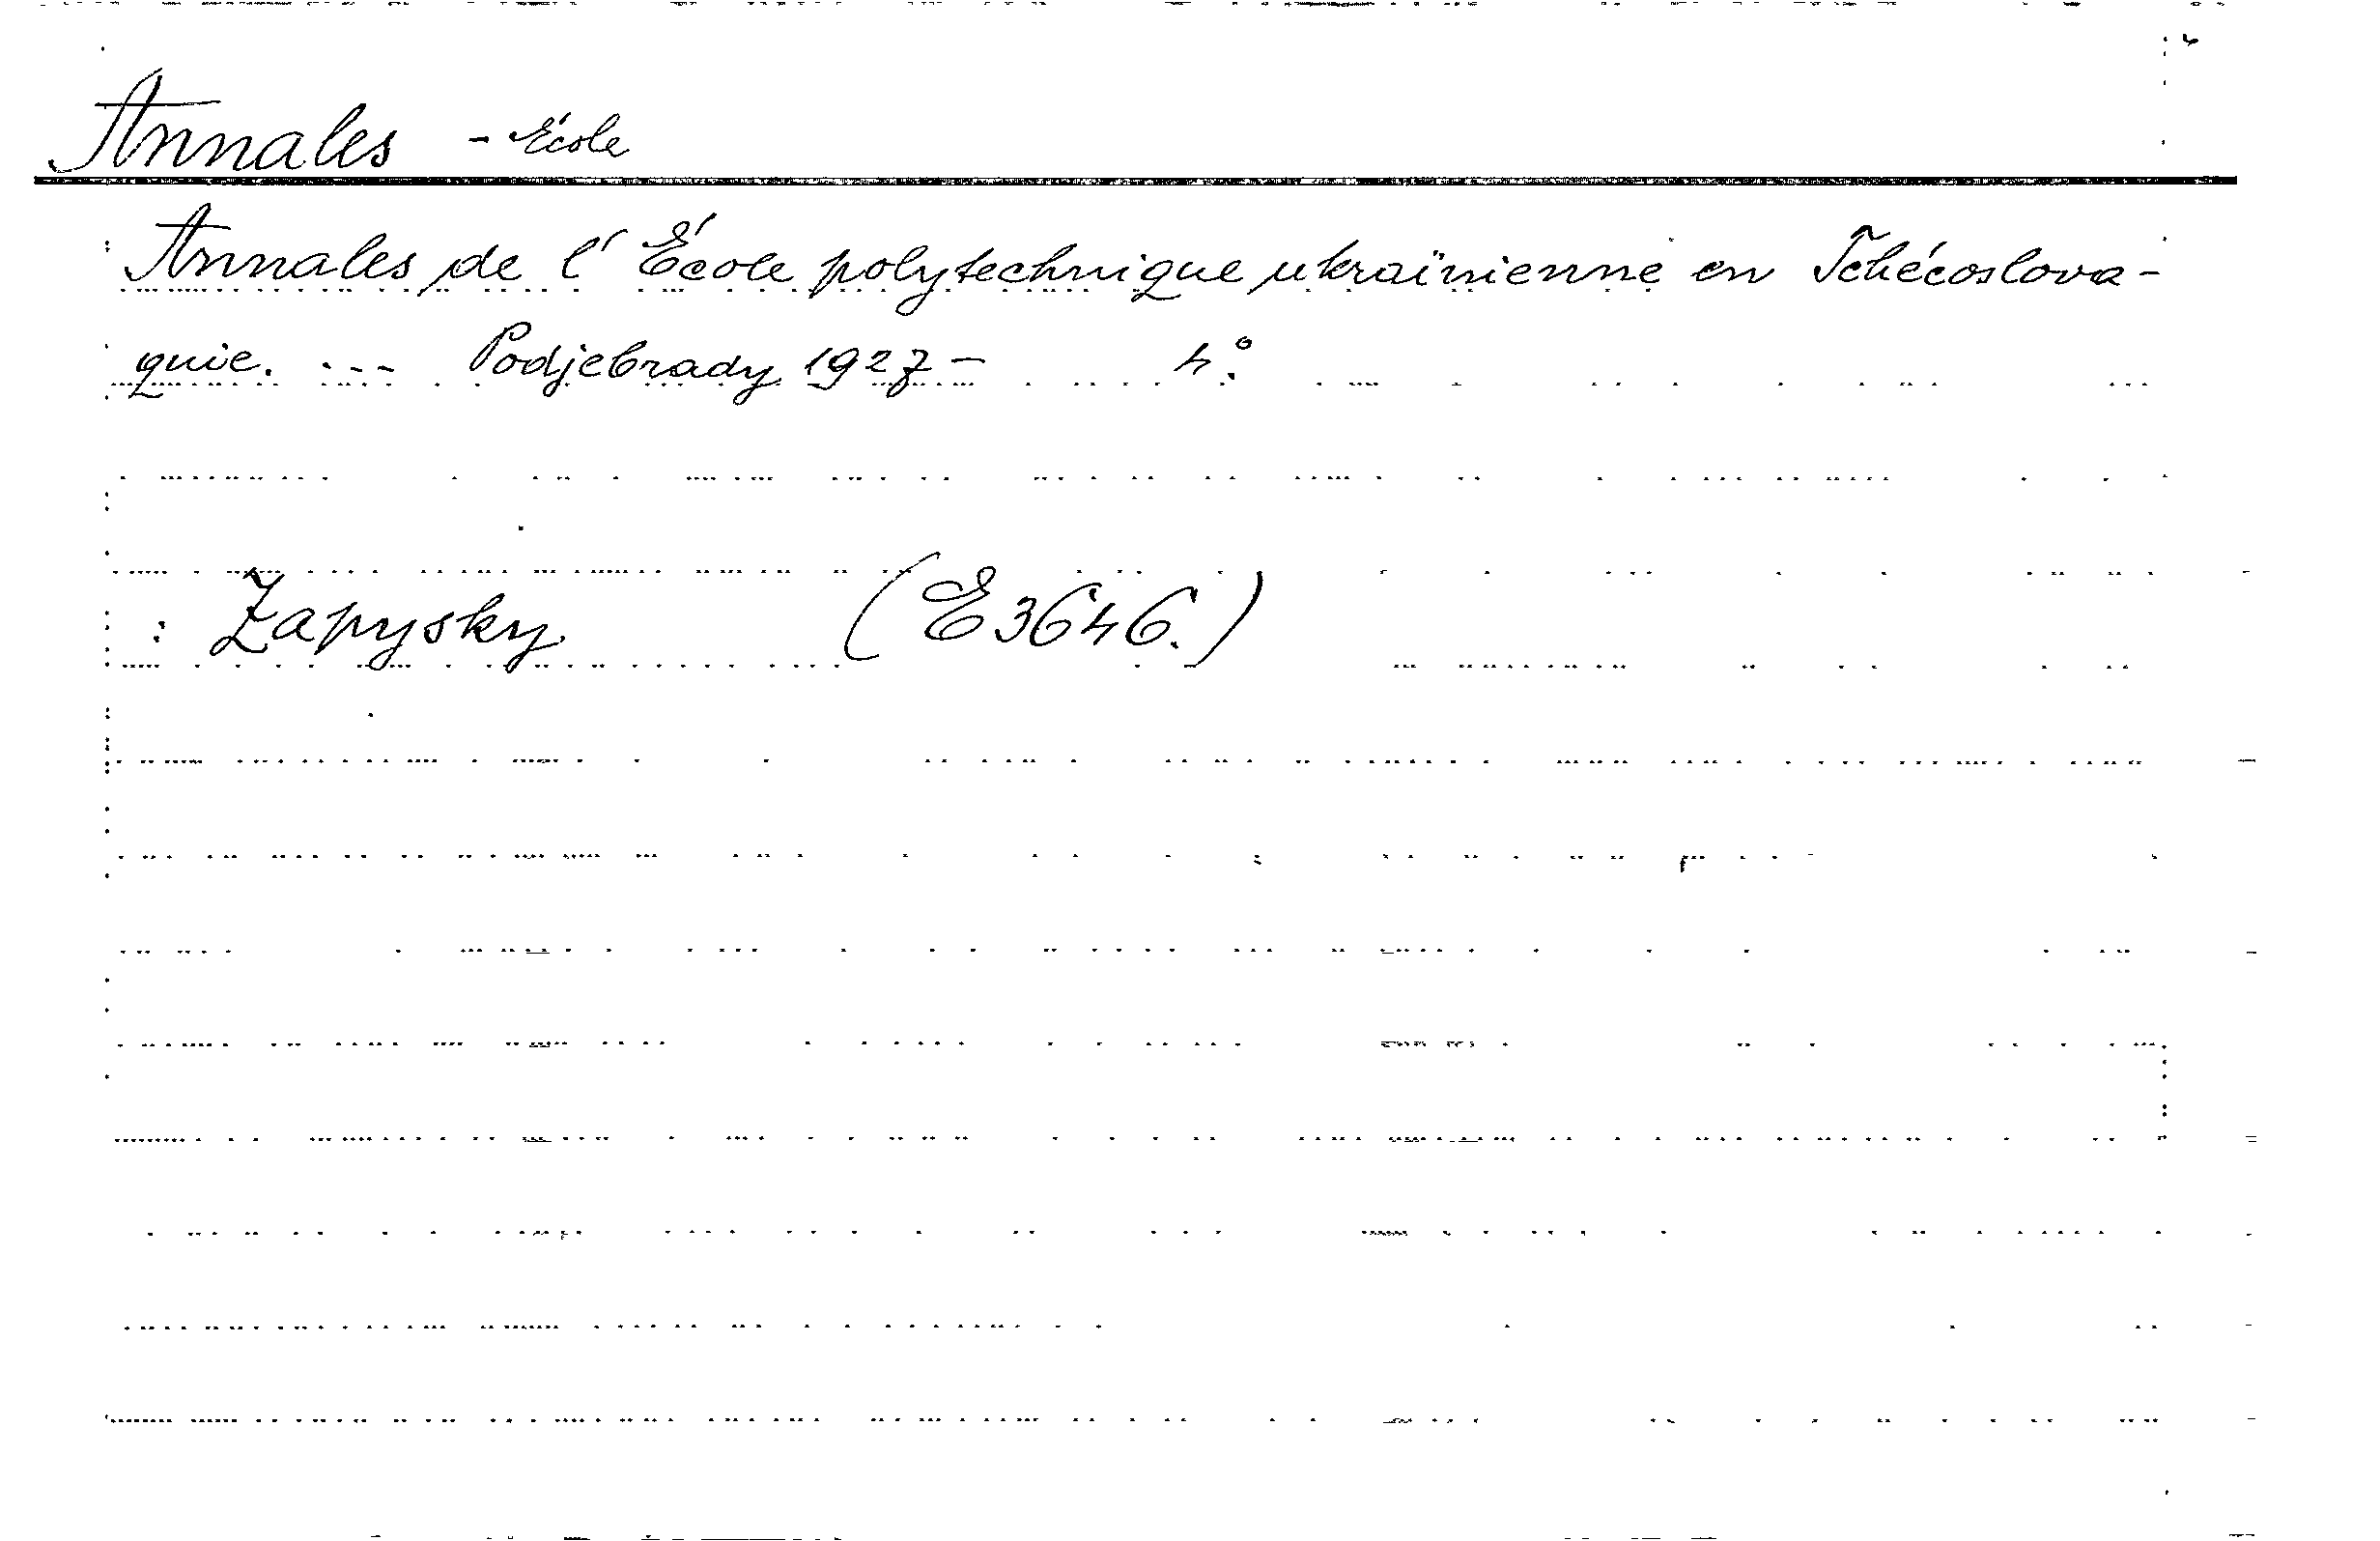 Annales - École
Annales de l'École polytechnique ukraïnienne en Tchécoslova-
quie. --- Podjebrady 1927- 4°.
: Zapysky (E3646.)